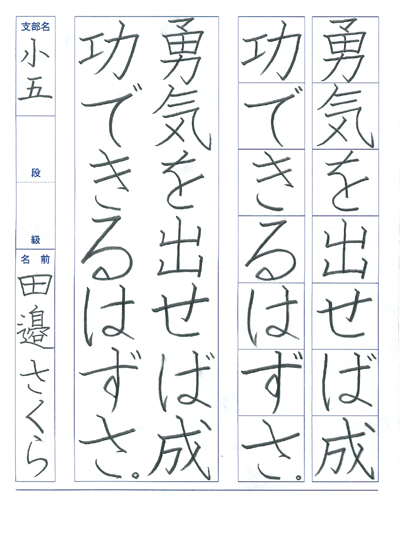 勇気を出せば成
功できるはずさ。
勇気を出せば成
功できるはずさ。
支部名
小五
段
級
名前
田邉さくら